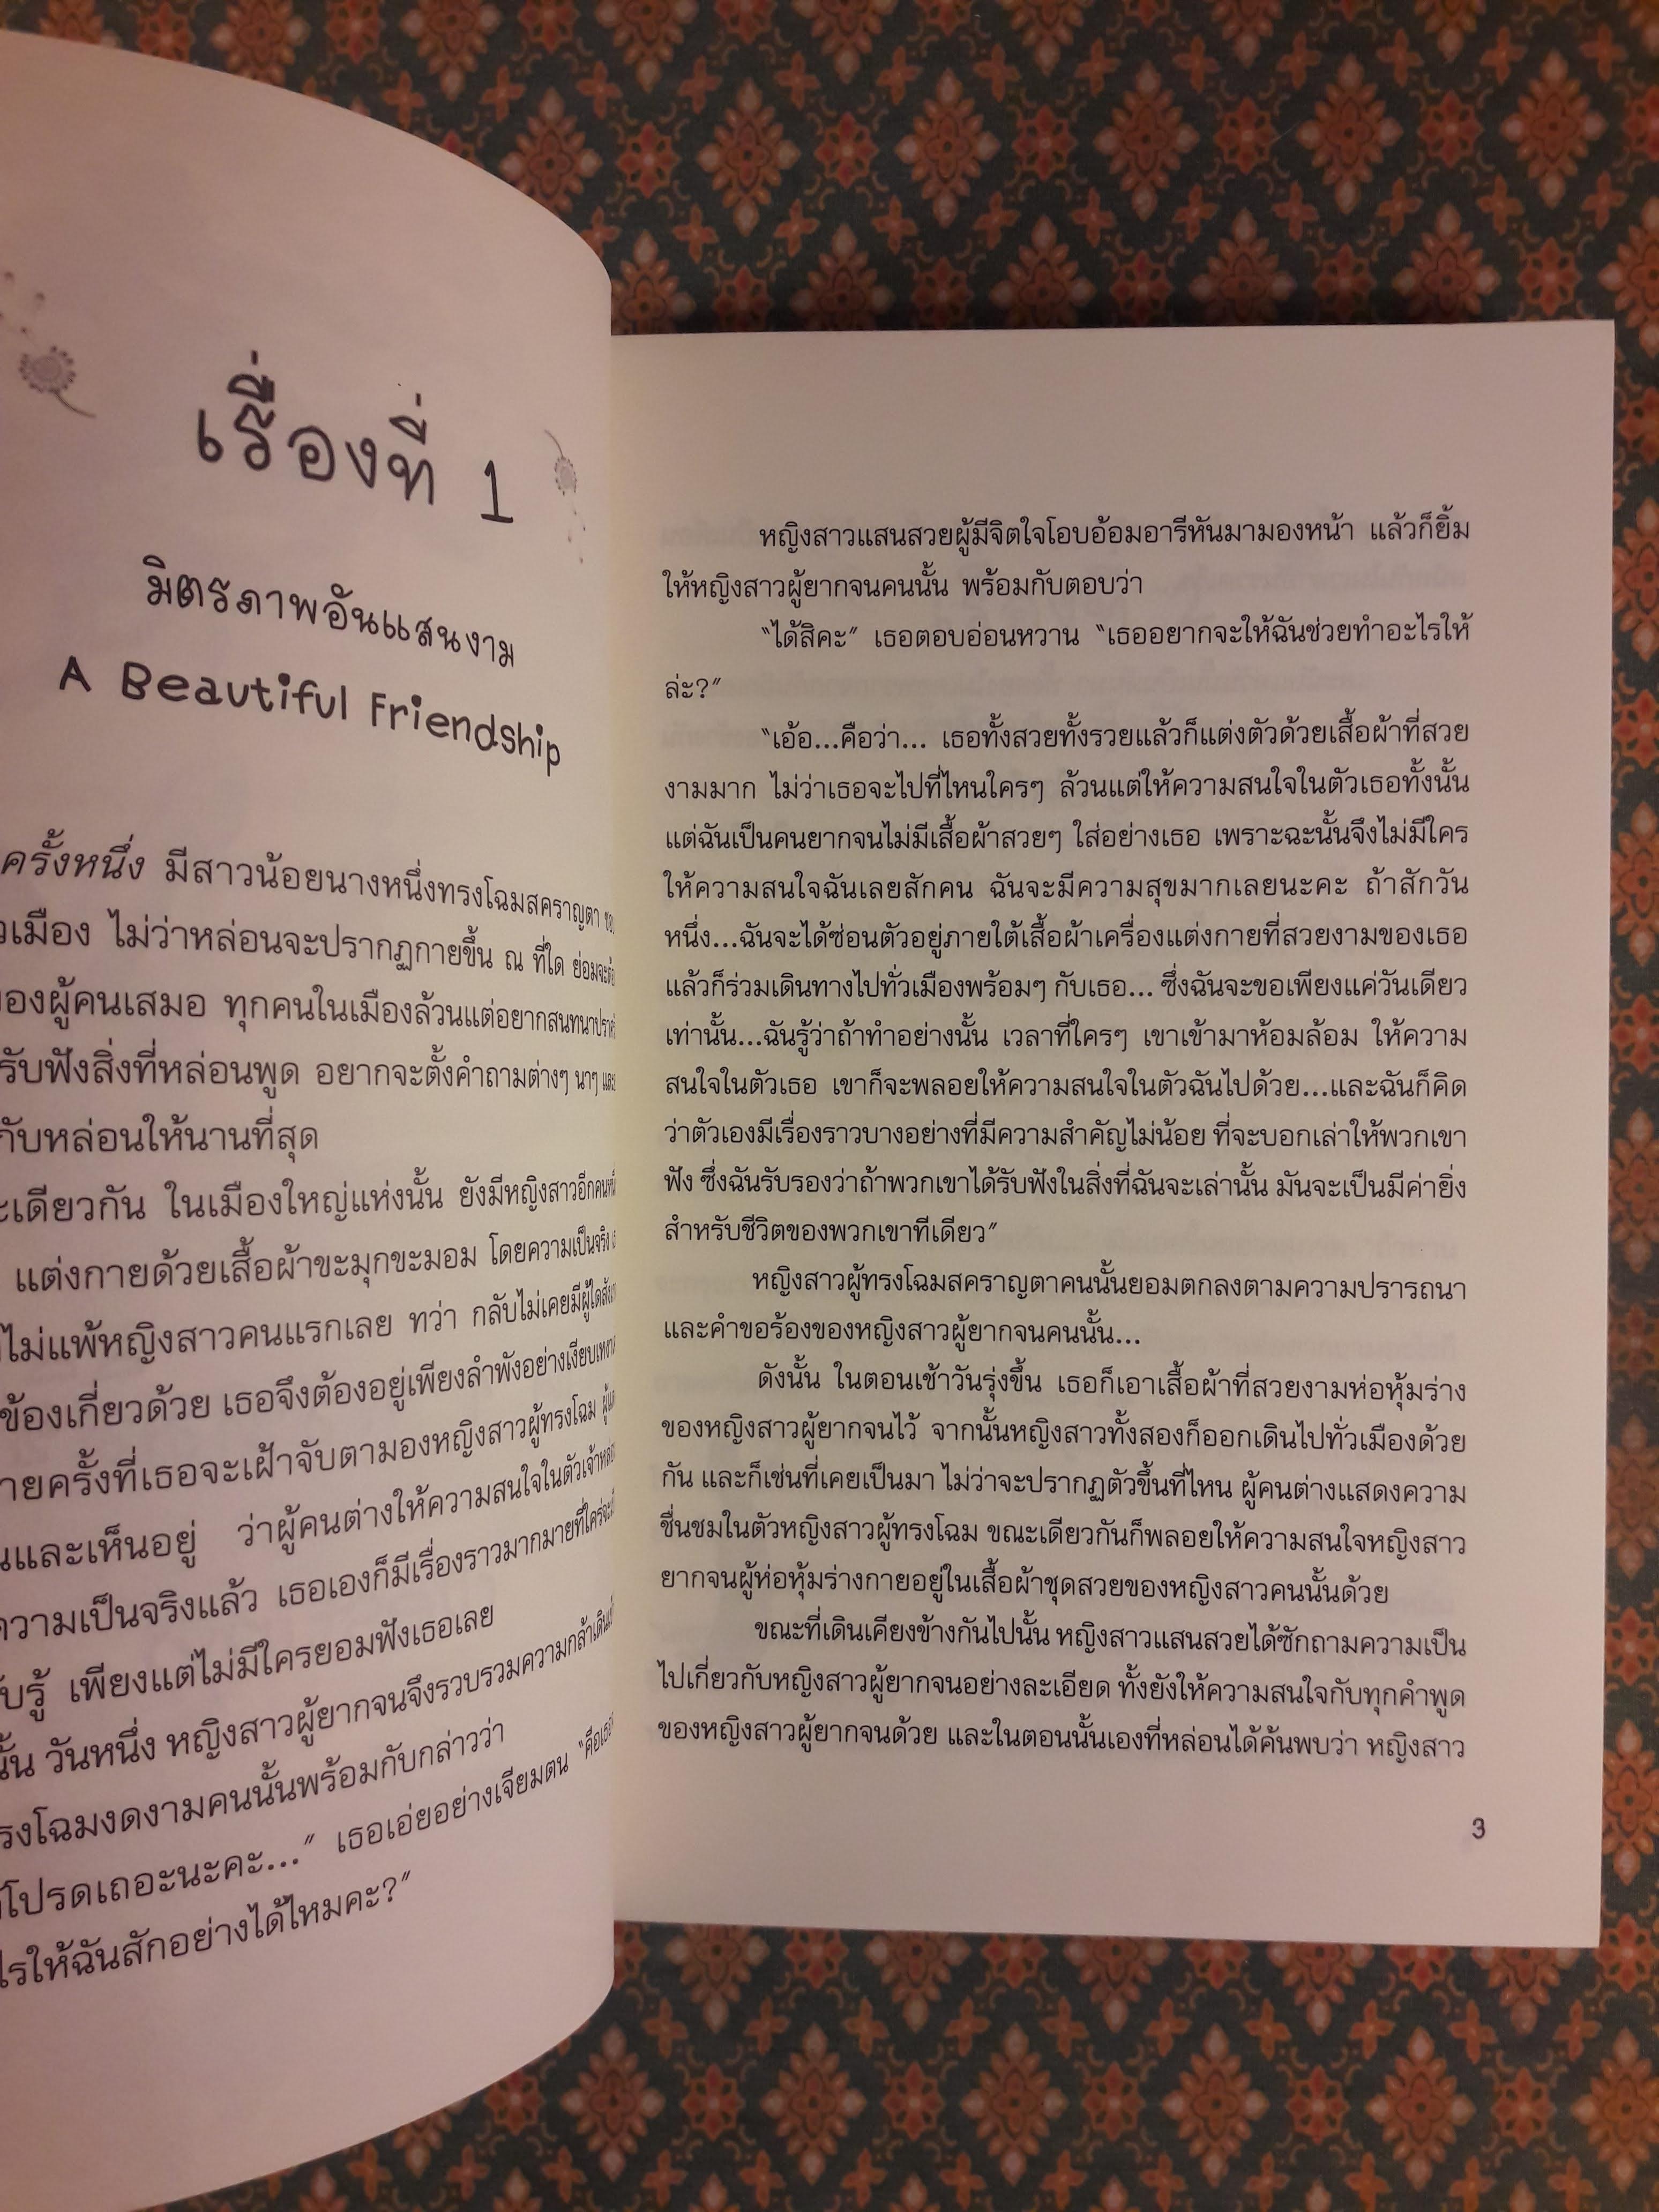 เรื่องที่ 1
มิตรภาพอันแสนงาม
A Beautiful Friendship
ครั้งหนึ่ง มีสาวน้อยนางหนึ่งทรงโฉมสคราญตา
เมือง ไม่ว่าหล่อนจะปรากฏกายขึ้น ณ ที่ใด ย่อมจะ
ของผู้คนเสมอ ทุกคนในเมืองล้วนแต่อยากสนทนา
รับฟังสิ่งที่หล่อนพูด อยากจะตั้งคำถามต่างๆ นาๆ และ
กับหล่อนให้นานที่สุด
เดียวกัน ในเมืองใหญ่แห่งนั้น ยังมีหญิงสาวอีกคน
แต่งกายด้วยเสื้อผ้าขะมุกขะมอม โดยความเป็นจริง
ไม่แพ้หญิงสาวคนแรกเลย ทว่า กลับไม่เคยมีผู้ใด
ข้องเกี่ยวด้วย เธอจึงต้องอยู่เพียงลำพังอย่างเงียบ
ครั้งที่เธอจะเฝ้าจับตามองหญิงสาวผู้ทรงโฉม
และเห็นอยู่ ว่าผู้คนต่างให้ความสนใจในตัวเจ้าหล่อน
ความเป็นจริงแล้ว เธอเองก็มีเรื่องราวมากมายที่ใคร่จะ
รับรู้ เพียงแต่ไม่มีใครยอมฟังเธอเลย
นั้น วันหนึ่ง หญิงสาวผู้ยากจนจึงรวบรวมความกล้าเดิน
ทรงโฉมงดงามคนนั้นพร้อมกับกล่าวว่า
โปรดเถอะนะคะ...” เธอเอ่ยอย่างเจียมตน “คือเธอ
ไรให้ฉันสักอย่างได้ไหมคะ?”
หญิงสาวแสนสวยผู้มีจิตใจโอบอ้อมอารีหันมามองหน้า แล้วก็ยิ้ม
ให้หญิงสาวผู้ยากจนคนนั้น พร้อมกับตอบว่า
“ได้สิคะ” เธอตอบอ่อนหวาน “เธออยากจะให้ฉันช่วยทำอะไรให้
ล่ะ?”
“เอ้อ...คือว่า... เธอทั้งสวยทั้งรวยแล้วก็แต่งตัวด้วยเสื้อผ้าที่สวย
งามมาก ไม่ว่าเธอจะไปที่ไหนใครๆ ล้วนแต่ให้ความสนใจในตัวเธอทั้งนั้น
แต่ฉันเป็นคนยากจนไม่มีเสื้อผ้าสวยๆ ใส่อย่างเธอ เพราะฉะนั้นจึงไม่มีใคร
ให้ความสนใจฉันเลยสักคน ฉันจะมีความสุขมากเลยนะคะ ถ้าสักวัน
หนึ่ง...ฉันจะได้ซ่อนตัวอยู่ภายใต้เสื้อผ้าเครื่องแต่งกายที่สวยงามของเธอ
แล้วก็ร่วมเดินทางไปทั่วเมืองพร้อมๆ กับเธอ... ซึ่งฉันจะขอเพียงแค่วันเดียว
เท่านั้น...ฉันรู้ว่าถ้าทำอย่างนั้น เวลาที่ใครๆ เขาเข้ามาห้อมล้อม ให้ความ
สนใจในตัวเธอ เขาก็จะพลอยให้ความสนใจในตัวฉันไปด้วย...และฉันก็คิด
ว่าตัวเองมีเรื่องราวบางอย่างที่มีความสำคัญไม่น้อย ที่จะบอกเล่าให้พวกเขา
ฟัง ซึ่งฉันรับรองว่าถ้าพวกเขาได้รับฟังในสิ่งที่ฉันจะเล่านั้น มันจะเป็นมีค่ายิ่ง
สำหรับชีวิตของพวกเขาทีเดียว”
หญิงสาวผู้ทรงโฉมสคราญตาคนนั้นยอมตกลงตามความปรารถนา
และคำขอร้องของหญิงสาวผู้ยากจนคนนั้น...
ดังนั้น ในตอนเช้าวันรุ่งขึ้น เธอก็เอาเสื้อผ้าที่สวยงามห่อหุ้มร่าง
ของหญิงสาวผู้ยากจนไว้ จากนั้นหญิงสาวทั้งสองก็ออกเดินไปทั่วเมืองด้วย
กัน และก็เช่นที่เคยเป็นมา ไม่ว่าจะปรากฏตัวขึ้นที่ไหน ผู้คนต่างแสดงความ
ชื่นชมในตัวหญิงสาวผู้ทรงโฉม ขณะเดียวกันก็พลอยให้ความสนใจหญิงสาว
ยากจนผู้ห่อหุ้มร่างกายอยู่ในเสื้อผ้าชุดสวยของหญิงสาวคนนั้นด้วย
ขณะที่เดินเคียงข้างกันไปนั้น หญิงสาวแสนสวยได้ซักถามความเป็น
ไปเกี่ยวกับหญิงสาวผู้ยากจนอย่างละเอียด ทั้งยังให้ความสนใจกับทุกคำพูด
ของหญิงสาวผู้ยากจนด้วย และในตอนนั้นเองที่หล่อนได้ค้นพบว่า หญิงสาว
3